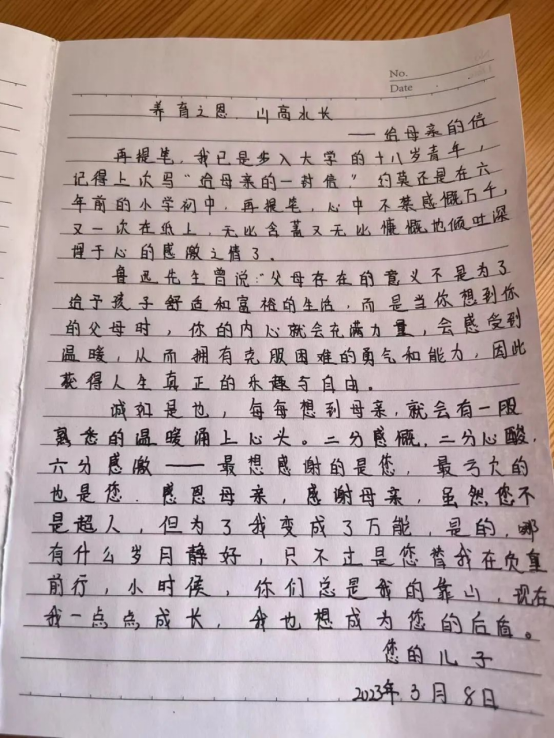 No.
Date
养育之恩,山高水长
——给母亲的信
再提笔,我已是步入大学的十八岁青年,
记得上次写"给母亲的一封信"约莫还是在六
年前的小学初中,再提笔,心中不禁感慨万千,
又一次在纸上,无比含蓄又无比慷慨地倾吐深
埋于心的感激之情了。
鲁迅先生曾说:"父母存在的意义不是为了
给予孩子舒适和富裕的生活,而是当你想到你
的父母时,你的内心就会充满力量,会感受到
温暖,从而拥有克服困难的勇气和能力,因此
获得人生真正的乐趣与自由。
诚如是也,每每想到母亲,就会有一股
熟悉的温暖涌上心头。二分感慨,二分心酸,
六分感激——最想感谢的是您,最亏欠的
也是您.感恩母亲,感谢母亲,虽然您不
是超人,但为了我变成了万能,是的,哪
有什么岁月静好,只不过是您替我在负重
前行,小时候,你们总是我的靠山,现在
我一点点成长,我也想成为您的后盾。
您的儿子
2023年3月8日